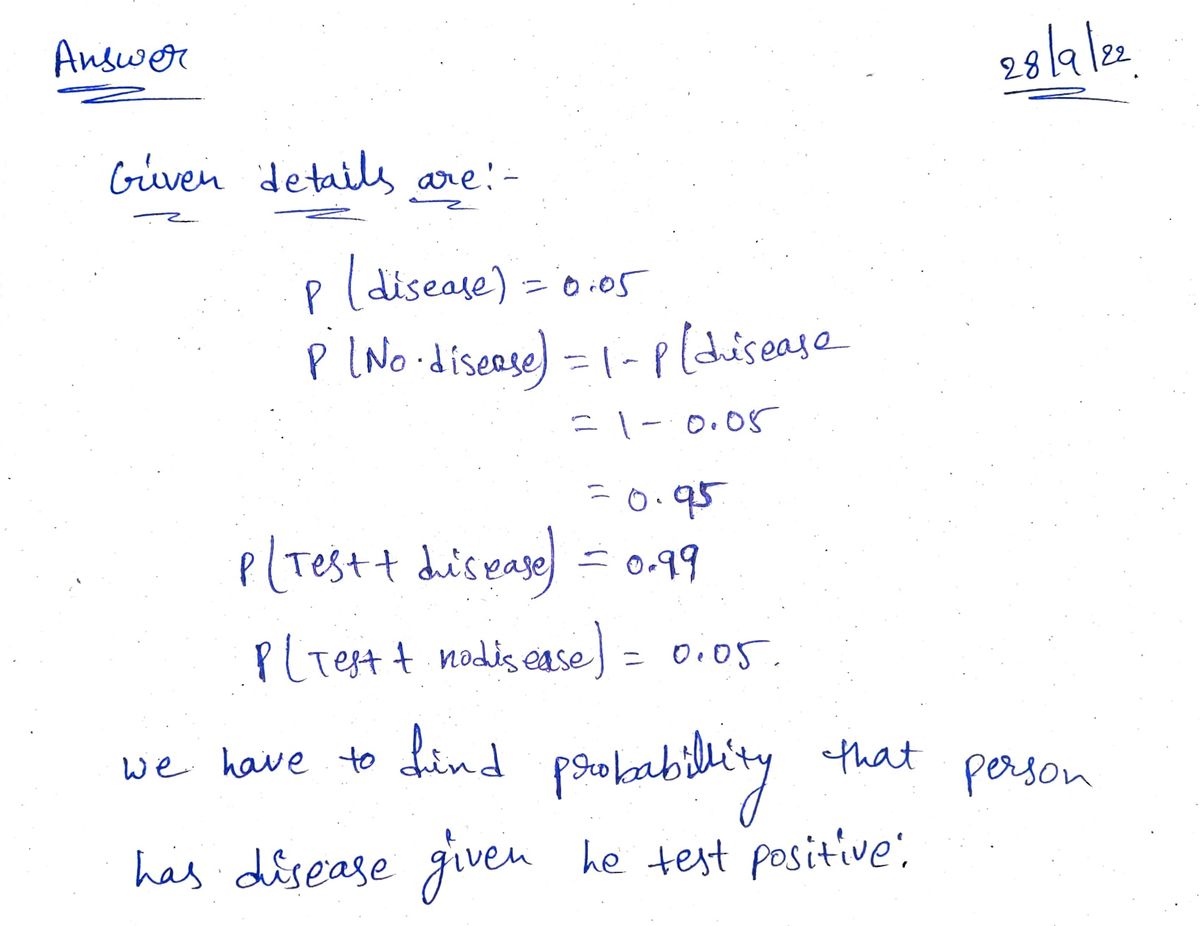 Answer
28/9/22.
Given details are:-
P (disease) = 0.05
P (No.disease) = 1 - P (disease
= 1 - 0.05
= 0.95
P(Test + disease) = 0.99
P(Test + nodisease) = 0.05.
we have to find probability that person
has disease given he test positive: